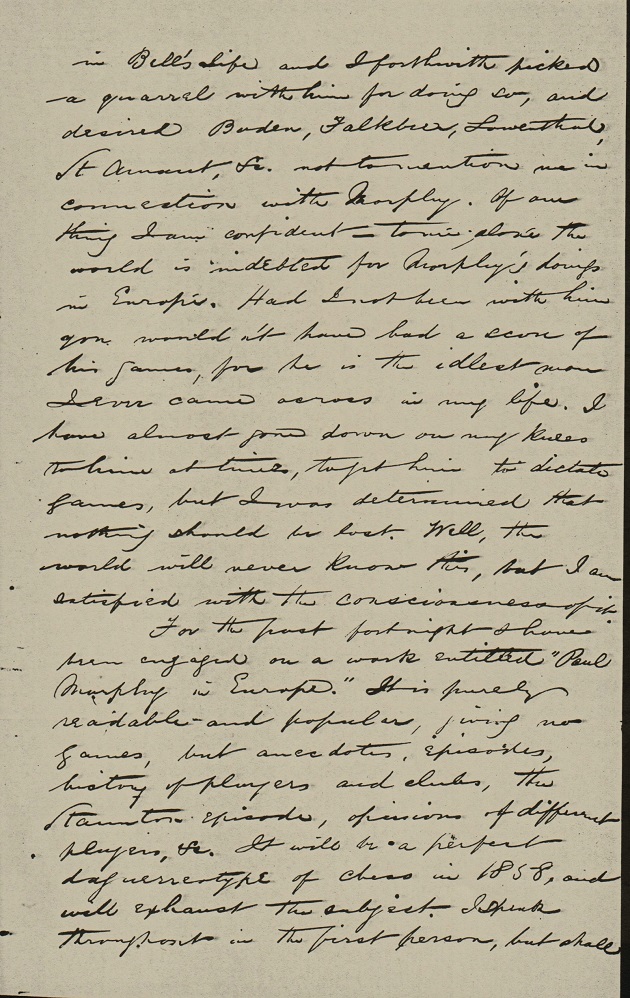 in Bell's Life and I forthwith picked
a quarrel with him for doing so, and
desired Boden, Falkbeer, Lowenthal,
St Amant, &c. not to mention me in
connection with Morphy. Of one
thing I am confident – to me alone the
world is indebted for Morphy's doings
in Europe. Had I not been with him
you would n't have had a score of
his games, for he is the idlest man
I ever came across in my life. I
have almost gone down on my knees
to him at times, to get him to dictate
games, but I was determined that
nothing should be lost. Well, the
world will never know this, but I am
satisfied with the consciousness of it.
For the past fortnight I have
been engaged on a work entitled "Paul
Morphy in Europe." It is purely
readable and popular, giving no
games, but anecdotes, episodes,
history of players and clubs, the
Staunton episode, opinions of different
players, &c. It will be a perfect
daguerreotype of chess in 1858, and
will exhaust the subject. I speak
throughout in the first person, but shall